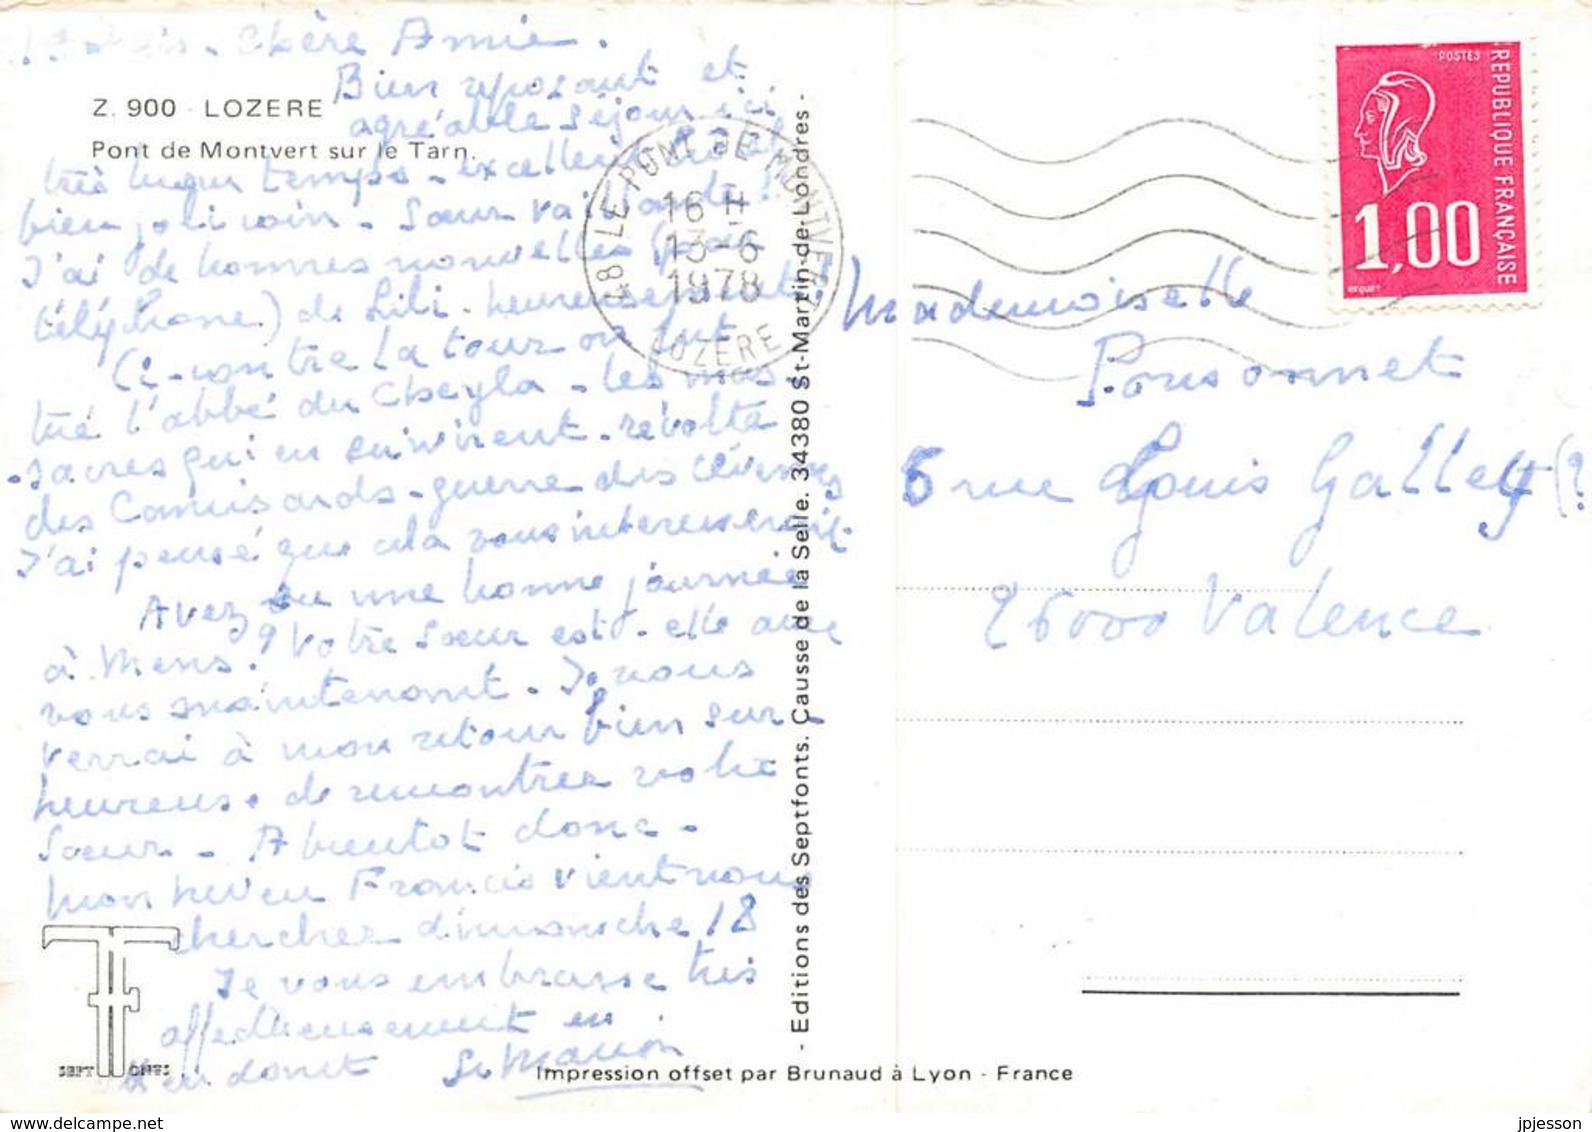 Chère Amie.
Bien reposant et
agréable séjour ici
Z. 900 - LOZERE
Pont de Montvert sur le Tarn.
très temps - excellent hotel
bien joli coin - Sœur vaillante !!
J'ai de bonnes nouvelles (par
téléphone) de Lili - heureusement
Ci-contre la tour où fut
tué l'abbé du Cheyla - les mas
-sacres qui en suivirent - révolte
des Camisards - guerre des Cévennes
J'ai pensé que cela vous intéresserait.
Avez eu une bonne journée
à Mens ? Votre Sœur est-elle avec
vous maintenant. Je vous
verrai à mon retour bien sur -
heureuse de rencontrer votre
Sœur - A bientot donc -
mon neveu Francis vient nous
chercher dimanche 18
Je vous embrasse très
affectueusement en
donet Sr Marion
SEPT FONTS
48 LE PONT DE MONTVERT
16 H
13-6
1978
LOZERE
- Editions des Septfonts. Causse de la Selle. 34380 St-Martin-de-Londres -
Impression offset par Brunaud à Lyon - France
POSTES
REPUBLIQUE FRANÇAISE
1,00
BEQUET
Mademoiselle
Ponsonnet
5 rue Louis Gallet (?
26000 Valence
jpjesson